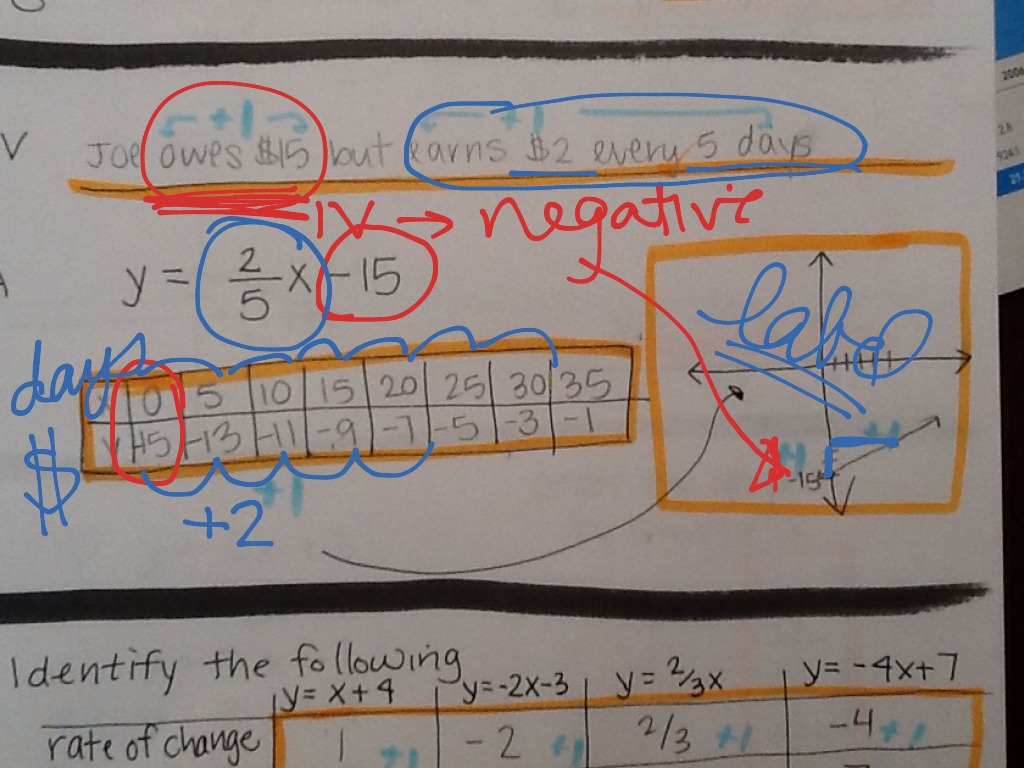 V
+1 +1
Joe owes $15 but earns $2 every 5 days
IV → negative
y = 2/5 x -15
label
days
x 0 5 10 15 20 25 30 35
y -15 -13 -11 -9 -7 -5 -3 -1
$
+1 +1
-15
+1
+2
Identify the following
y = x + 4 y = -2x - 3 y = 2/3x y = -4x + 7
rate of change 1 +1 -2 +1 2/3 +1 -4 +1